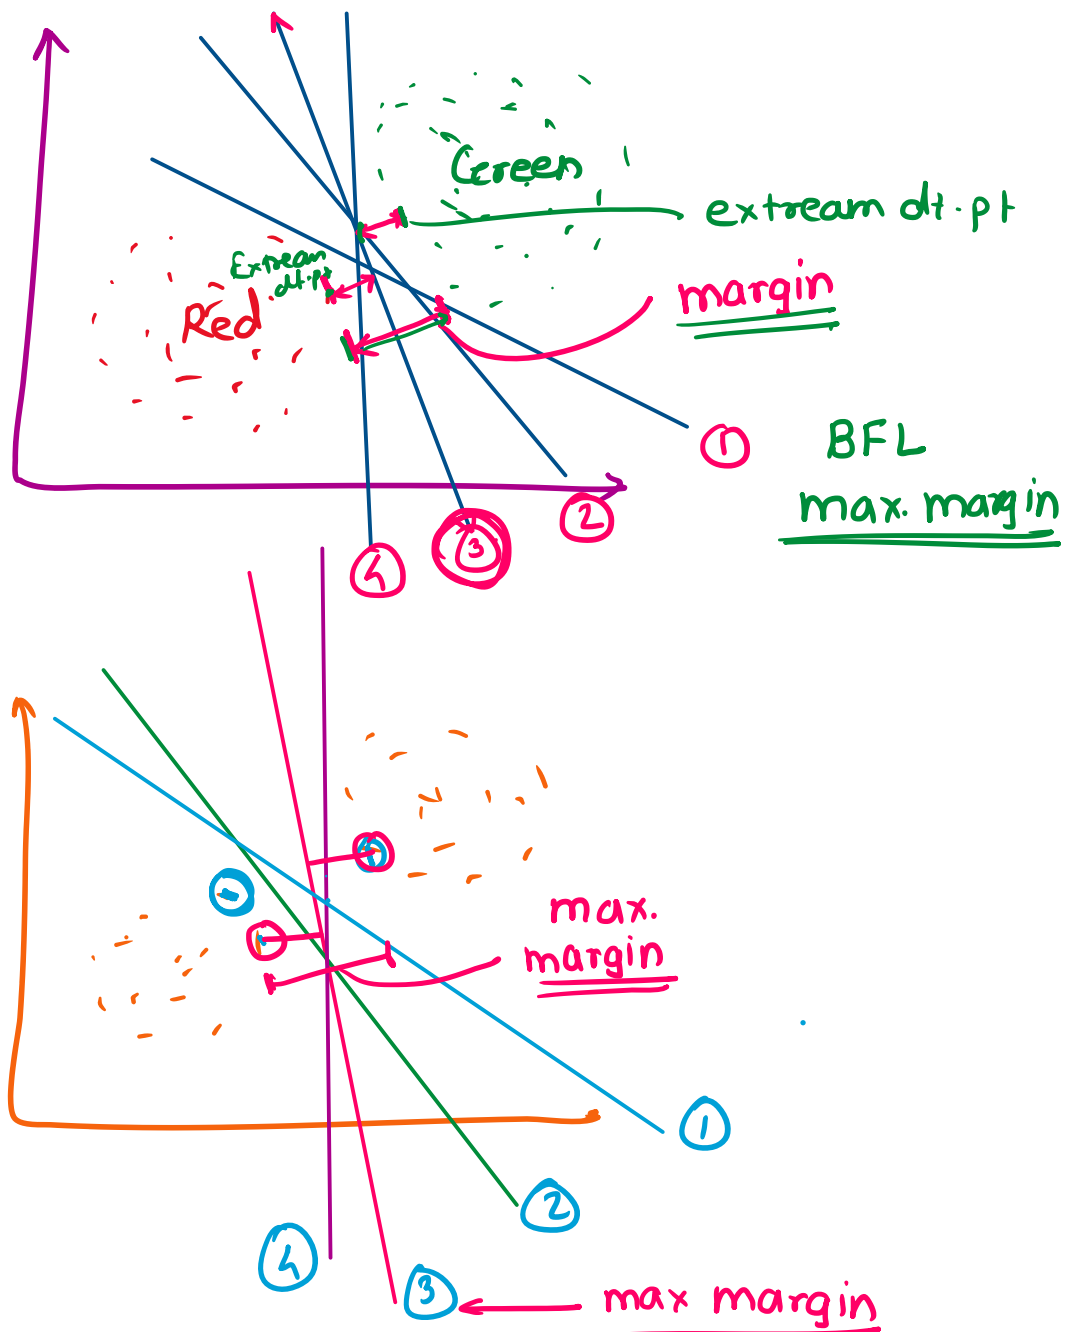 Green
extream dt.pt
Extream
dt.pt
margin
Red
1
BFL
max. margin
2
3
4
max.
margin
1
2
4
3
max margin